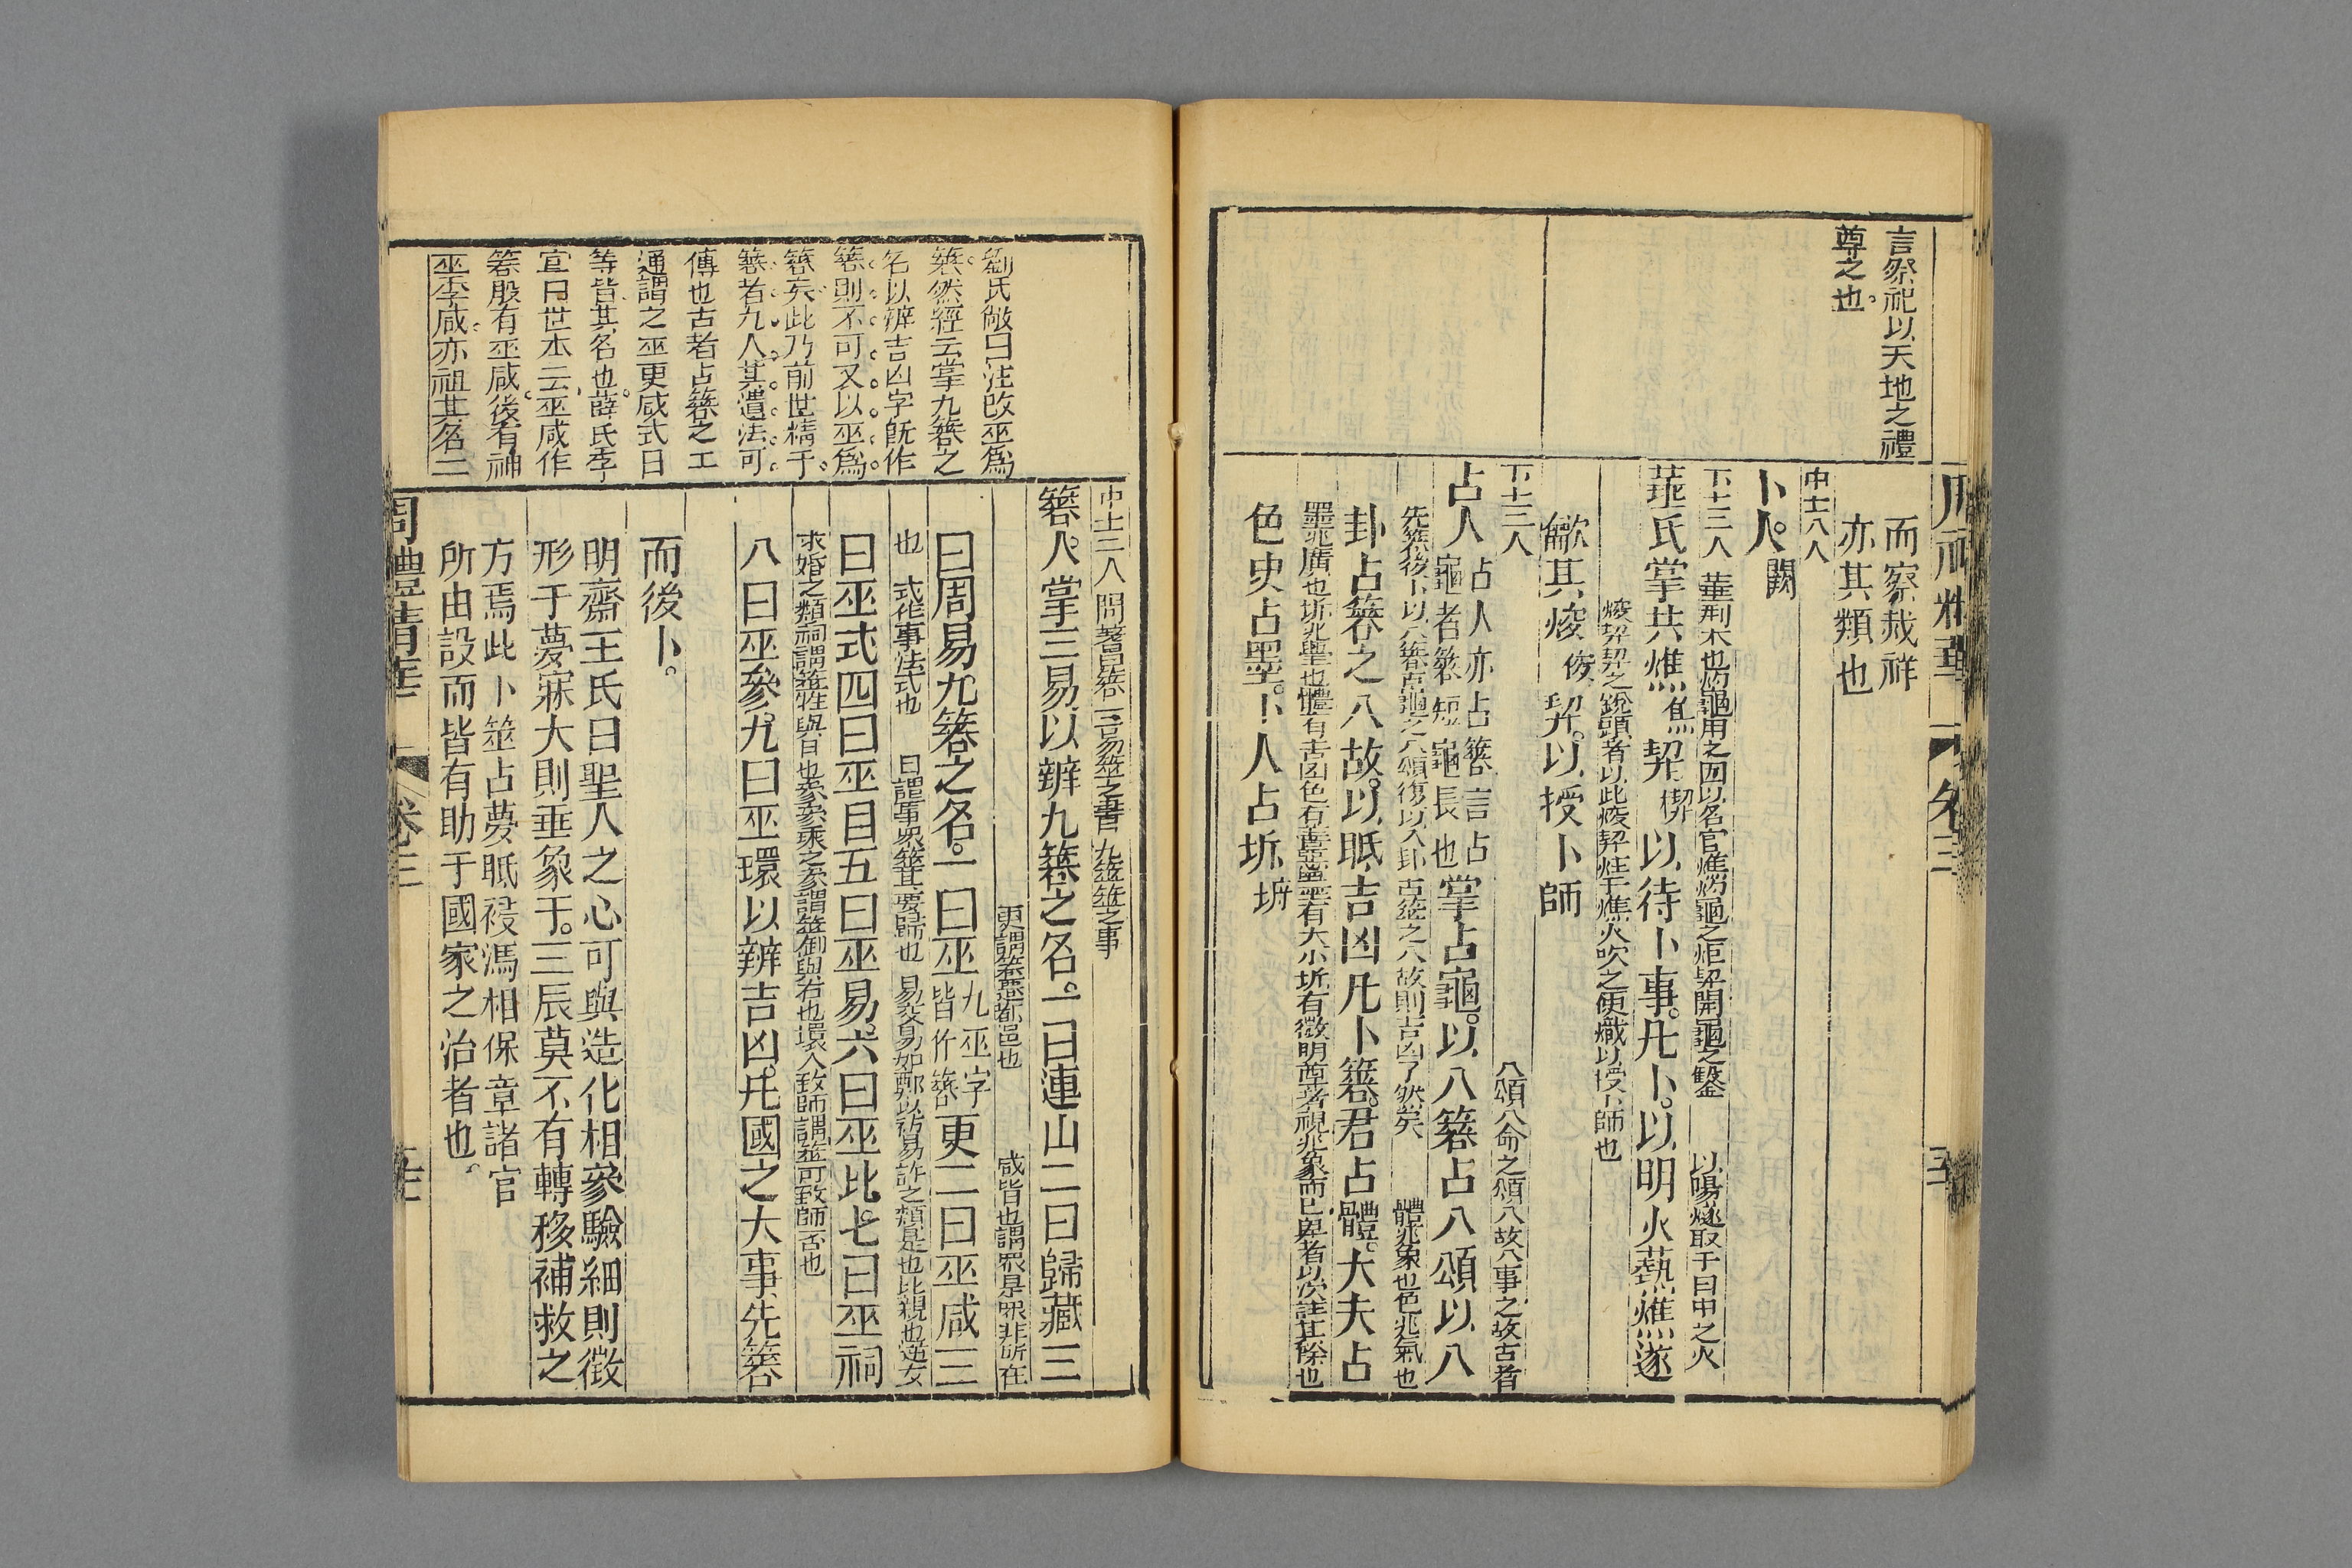 周禮精華
卷三
言祭祀以天地之禮
尊之也。
而察烖祥
亦其類也
中士八人
卜人。闕
下士三人 華荆木也灼龜用之因以名官燋灼龜之炬契開龜之鑿 以陽燧取于日中之火
菙氏掌共燋焦契楔以待卜事。凡卜。以明火爇燋遂
焌契契之銳頭者以此焌契炷于燋火吹之使熾以授卜師也
龡其焌俊契。以授卜師
下士三人 八頌八命之頌八故八事之故古者
占人占人亦占簭言占龜者簭短龜長也掌占龜。以八簭占八頌以八
先簭後卜以八簭占龜之八頌復以八卦占筮之八故則吉凶了然矣 體兆象也色兆氣也
卦占簭之八故。以眂吉凶凡卜簭。君占體。大夫占
墨兆廣也坼兆舋也體有吉凶色有善惡墨有大小坼有微明尊者視兆象而已卑者以次詳其餘也
色史占墨。卜人占坼
劉氏敞曰注改巫爲
簭。然經云掌九簭之
名以辨吉凶字旣作
簭則不可又以巫爲
簭矣此乃前世精于
簭者九人其遺法可
傳也古者占簭之工
通謂之巫更咸式目
等皆其名也。薛氏季
宣曰世本云巫咸作
簭殷有巫咸後有神
巫季咸。亦祖其名二
中士二人 問蓍曰簭三易筮之書九筮筮之事
簭人。掌三易以辨九簭之名。一曰連山二曰歸藏三
更謂筮遷都邑也 咸皆也謂衆是衆非所在
曰周易九簭之名。一曰巫九巫字皆作簭更二曰巫咸三
也 式作事法式也 目謂事衆筮其要歸也 易交易如鄭以祊易許之類是也比親也逆女
曰巫式四曰巫目五曰巫易。六曰巫比。七曰巫祠
求婚之類祠謂筮牲與日也參參乘之參謂筮御與右也環人致師謂筮可致師否也
八曰巫參。九曰巫環以辨吉凶。凡國之大事。先簭
而後卜。
明齋王氏曰聖人之心可與造化相參驗細則徵
形于夢寐大則垂象于。三辰莫不有轉移補救之
方焉此卜筮占夢眂祲馮相保章諸官
所由設而皆有助于國家之治者也。
周禮精華
卷三